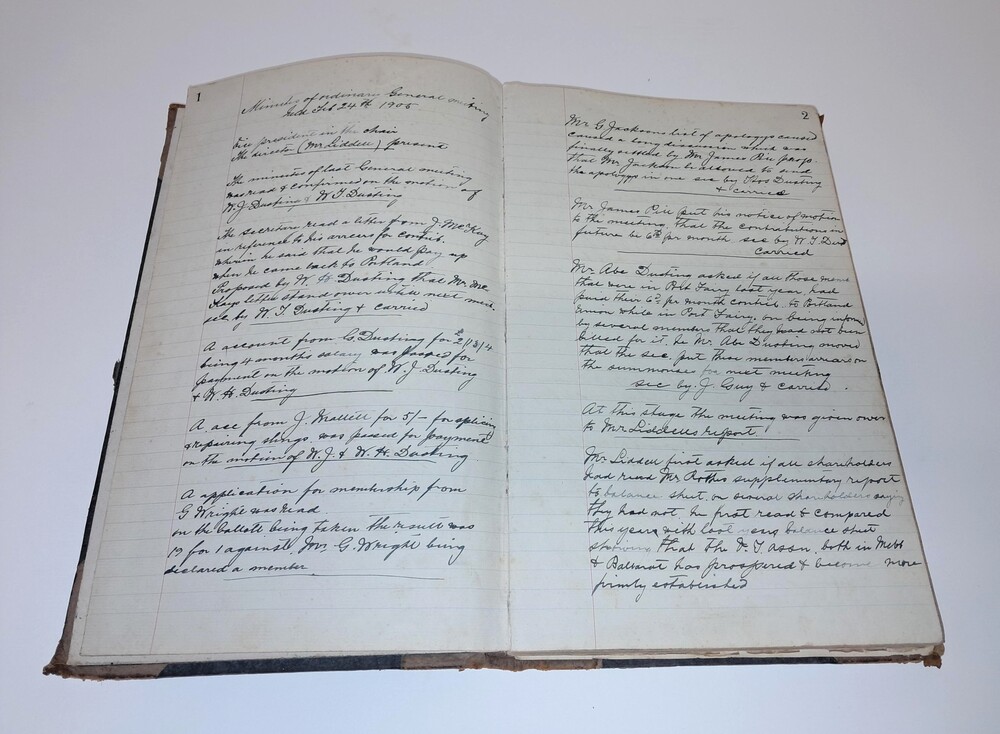 1
Minutes of ordinary General meeting
held Feb 24th 1905
Vice president in the chair
The director (Mr Liddell) present
The minutes of last General meeting
was read & confirmed on the motion of
W. J. Dusting & W T Dusting
The secretary read a letter from J. McKay
in reference to his arrears for contrib.
wherin he said that he would pay up
when he came back to Portland
Proposed by W. H. Dusting that Mr Mc
Kays letter stand over until next meet.
sec. by W. T Dusting & carried
A account from C. Dusting for £2/13/4
being 4 months salary was passed for
payment on the motion of W. J Dusting
& W. H. Dusting
A acc from J. Mallett for 5/- for splicing
& repairing slings was passed for payment
on the motion of W. J. & W. H. Dusting
A application for membership from
G Wright was read.
on the ballott being taken the result was
19 for 1 against Mr G. Wright being
declared a member
2
Mr G Jacksons list of apologys caused
caused a long discussion which was
finally settled by Mr James Pill
that Mr Jackson be allowed to send
the apologys in one sec by Thos Dusting
& carried
Mr James Pill put his notice of motion
to the meeting. that the contributions in
future be 6d per month sec by W. T. Dust
carried
Mr Abe Dusting asked if all those
that were in Port Fairy last year, had
paid their 6d per month contrib. to Portland
Union while in Port Fairy, on being inform
by several members that they had not been
billed for it, he Mr Abe Dusting moved
that the sec. put those members arrears on
the summonse for next meeting
sec by. J. Guy & carried.
At this stage the meeting was given over
to Mr Liddells report.
Mr Liddell first asked if all shareholders
had read Mr Roths supplementary report
to balance sheet, on several shareholders saying
they had not, he first read & compared
this years with last years balance sheet
showing that the assn. both in Melb
& Ballarat has prospered & become more
firmly established